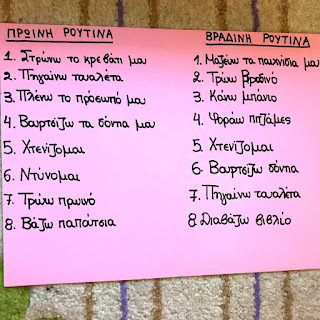 ΠΡΩΙΝΗ ΡΟΥΤΙΝΑ
1. Στρώνω το κρεβάτι μου
2. Πηγαίνω τουαλέτα
3. Πλένω το πρόσωπό μου
4. Βουρτσίζω τα δόντια μου
5. Χτενίζομαι
6. Ντύνομαι
7. Τρώω πρωινό
8. Βάζω παπούτσια
ΒΡΑΔΙΝΗ ΡΟΥΤΙΝΑ
1. Μαζεύω τα παιχνίδια μου
2. Τρώω βραδινό
3. Κάνω μπάνιο
4. Φοράω πιτζάμες
5. Χτενίζομαι
6. Βουρτσίζω δόντια
7. Πηγαίνω τουαλέτα
8. Διαβάζω βιβλίο